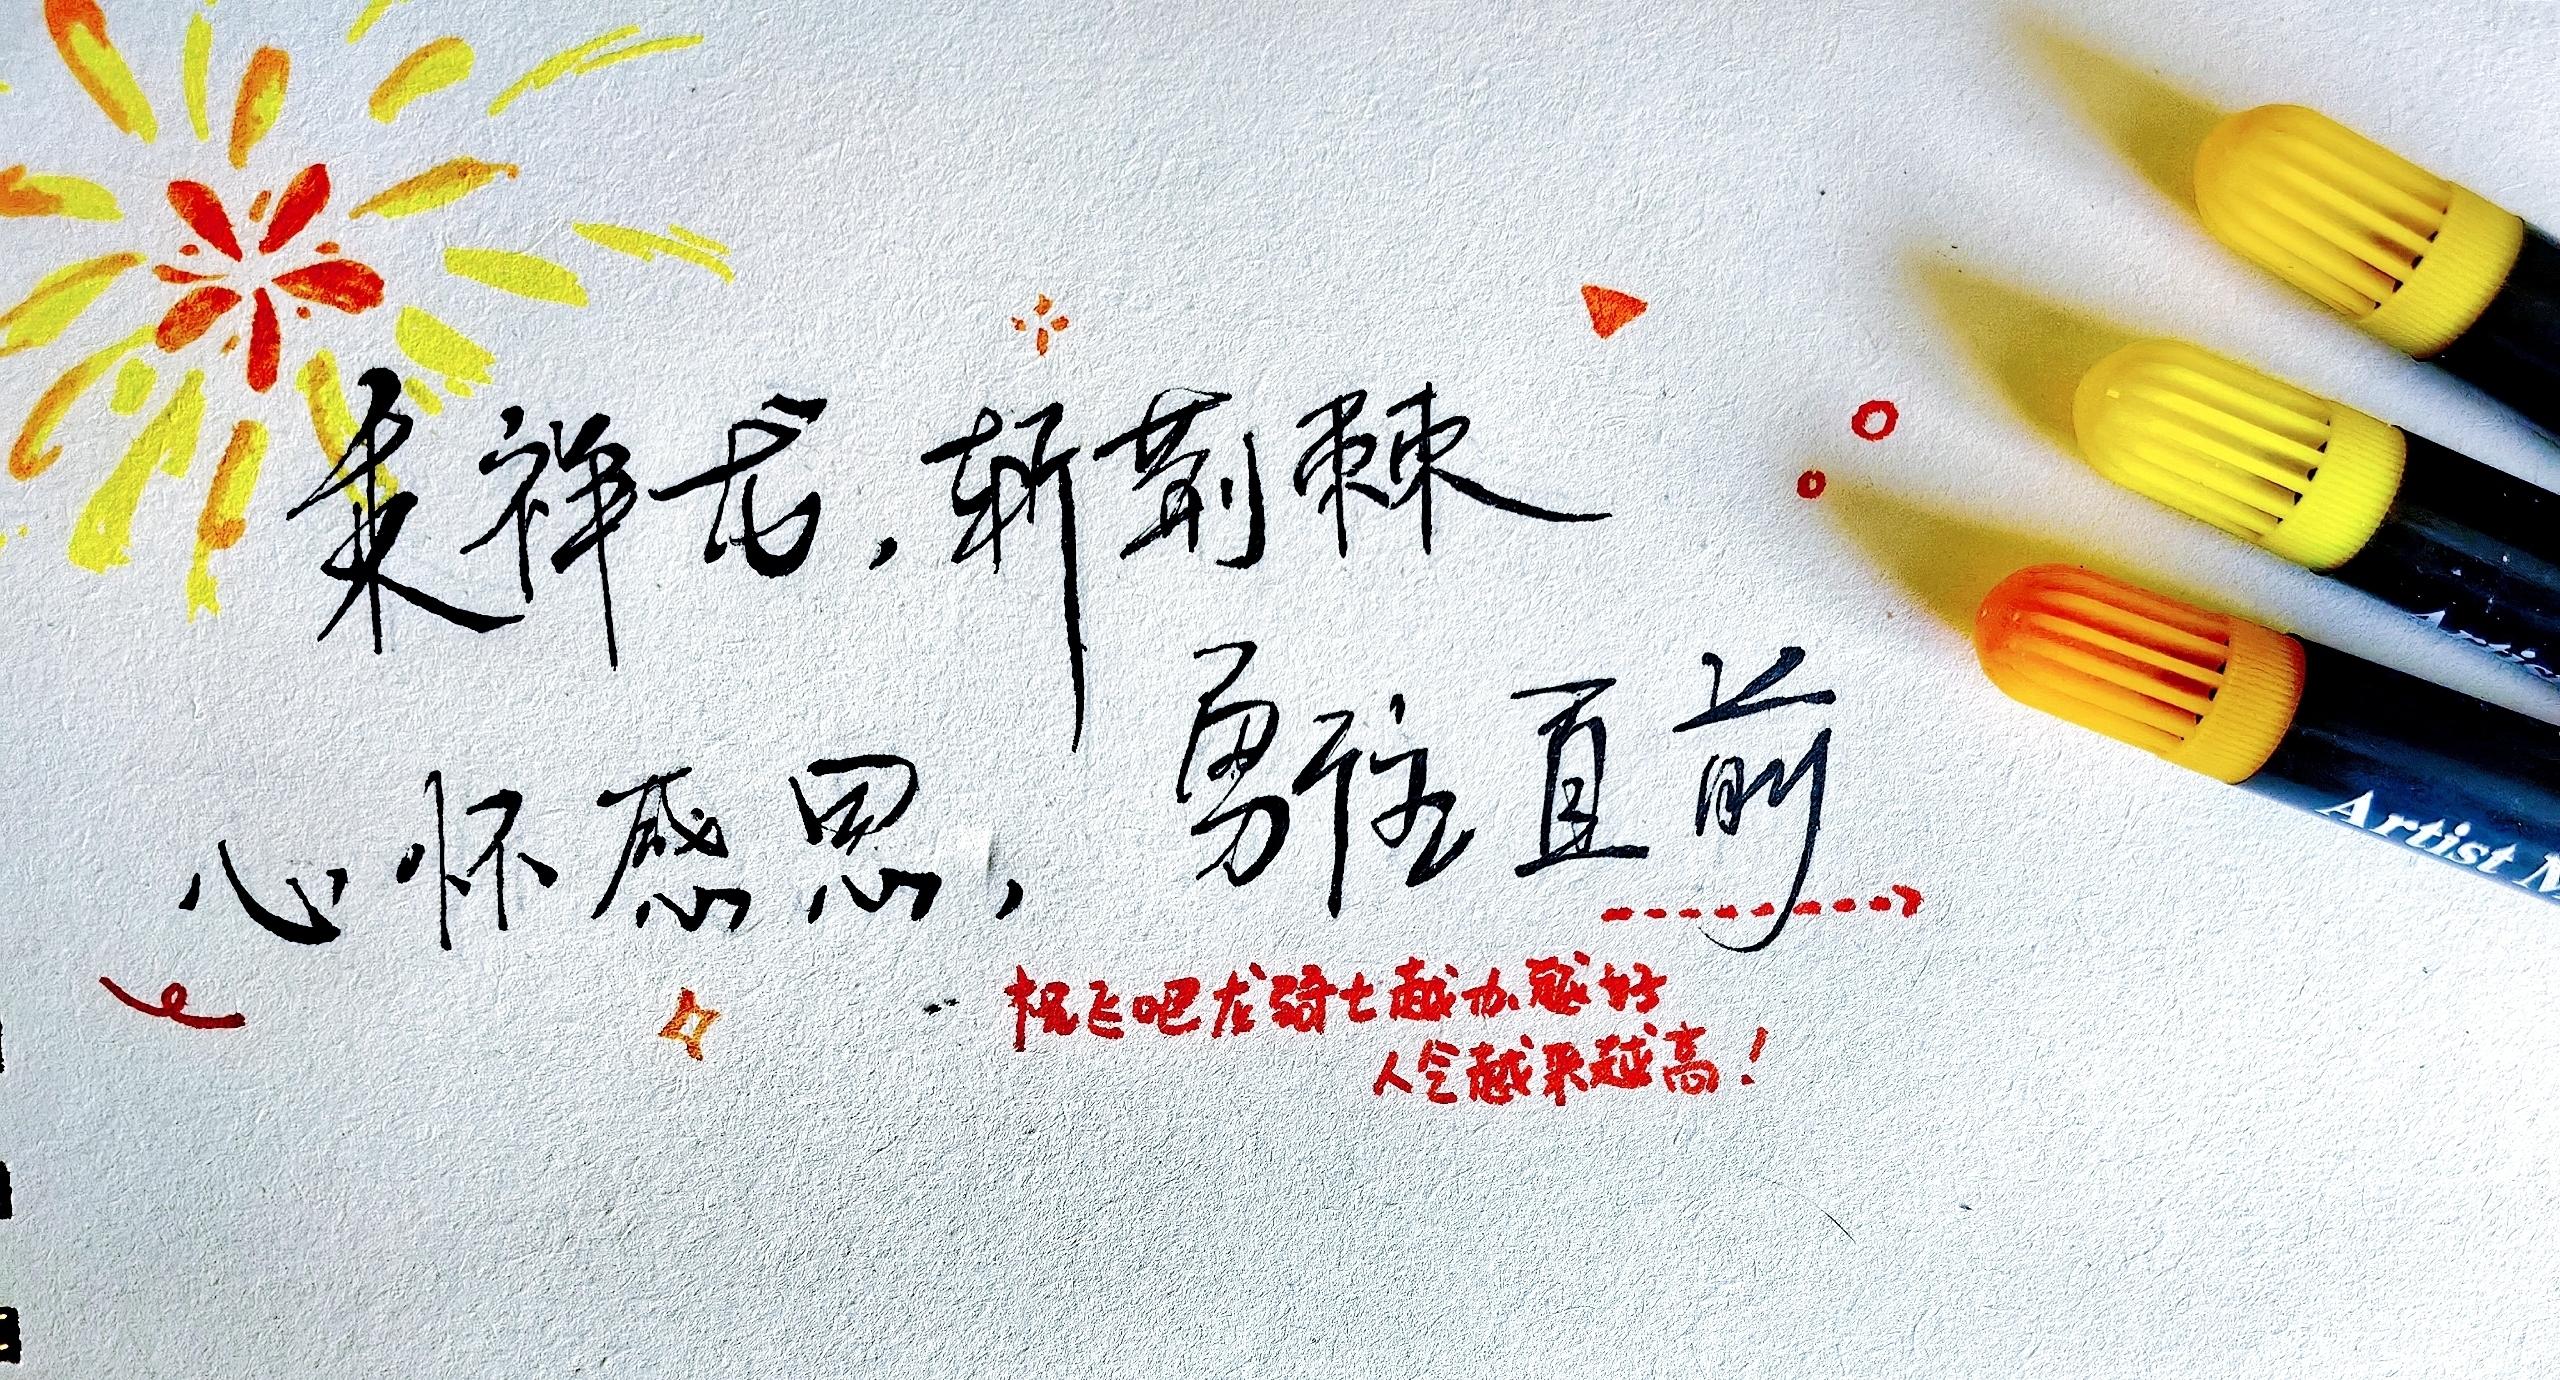 乘祥龙，斩荆棘
心怀感恩，勇往直前
祝飞吧龙骑士越办越好
人气越来越高！
Artist M
Artis